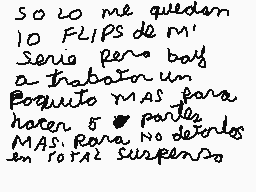 SOLO me quedan
10 FLIPS de mi
serie pero boy
a trabatar un
poquito MAS para
hacer 5 partes
MAS. Para NO detorlos
en TOTAL suspenso